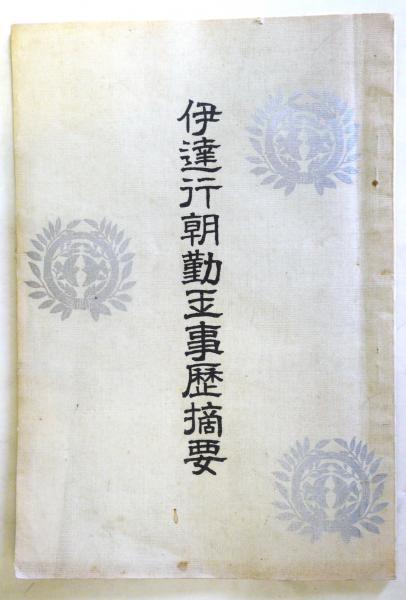 伊達行朝勤王事歴摘要